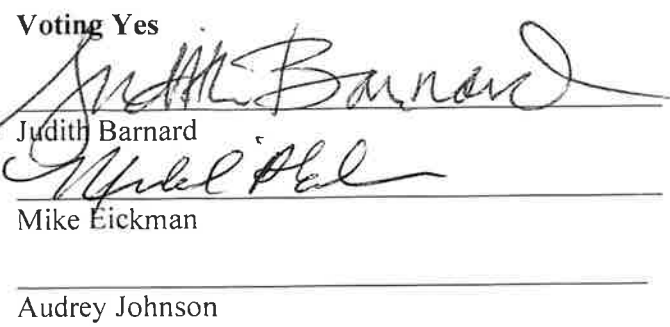 Voting Yes
Judith Barnard
Judith Barnard
Mike Eickman
Audrey Johnson